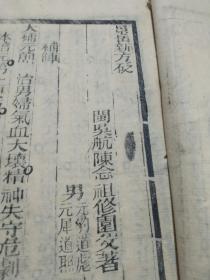 景岳新方砭
閩吳航陳念祖修園父著
男
元豹道彪
元犀道耶
補陣
大補元煎 治男婦氣血大壞精神失守危劇